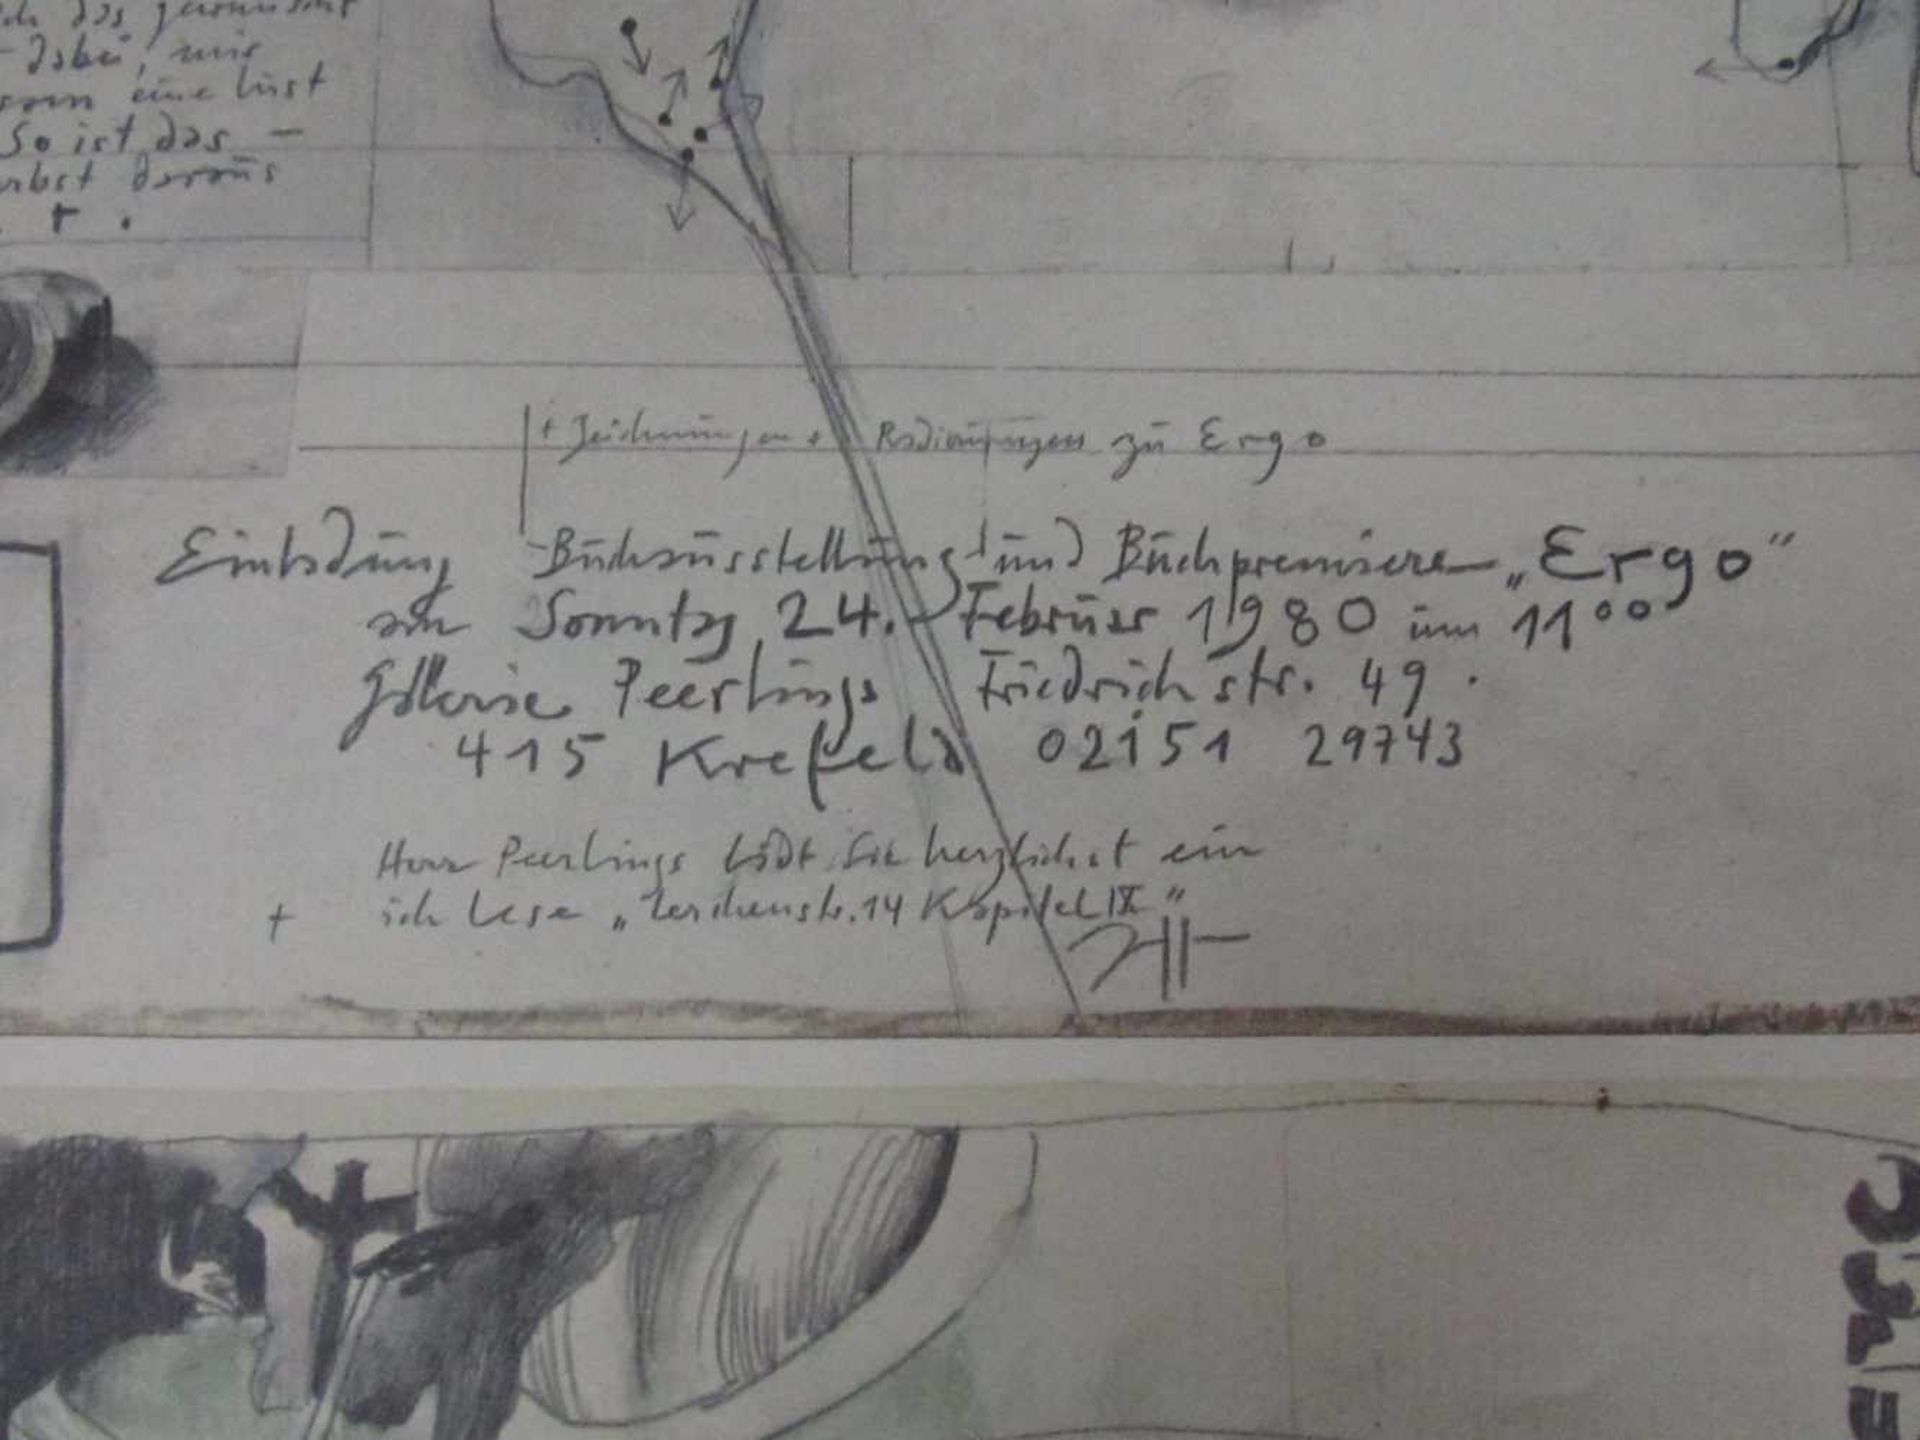 das
dabei, mir
eine Lust
So ist das —
daraus
+ Zeichnungen + Radierungen zu Ergo
Einladung - Buchausstellung und Buchpremiere „Ergo“
am Sonntag 24. Februar 1980 um 11⁰⁰
Galerie Peerlings Friedrichstr. 49.
415 Krefeld 02151 29743
Herr Peerlings lädt Sie herzlichst ein
+ ich lese „Lerchenstr. 14 Kapitel IX“